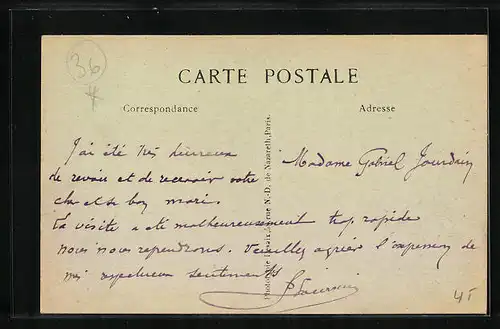 36
CARTE POSTALE
Correspondance
Adresse
J'ai été très heureux
de revoir et de recevoir votre
cher et si bon mari.
La visite a été malheureusement trop rapide
nous nous reprendrons. Veuillez agréer l'expression de
mes respectueux sentiments
Madame Gabriel Jourdain
N.-D. de Nazareth, Paris.
45